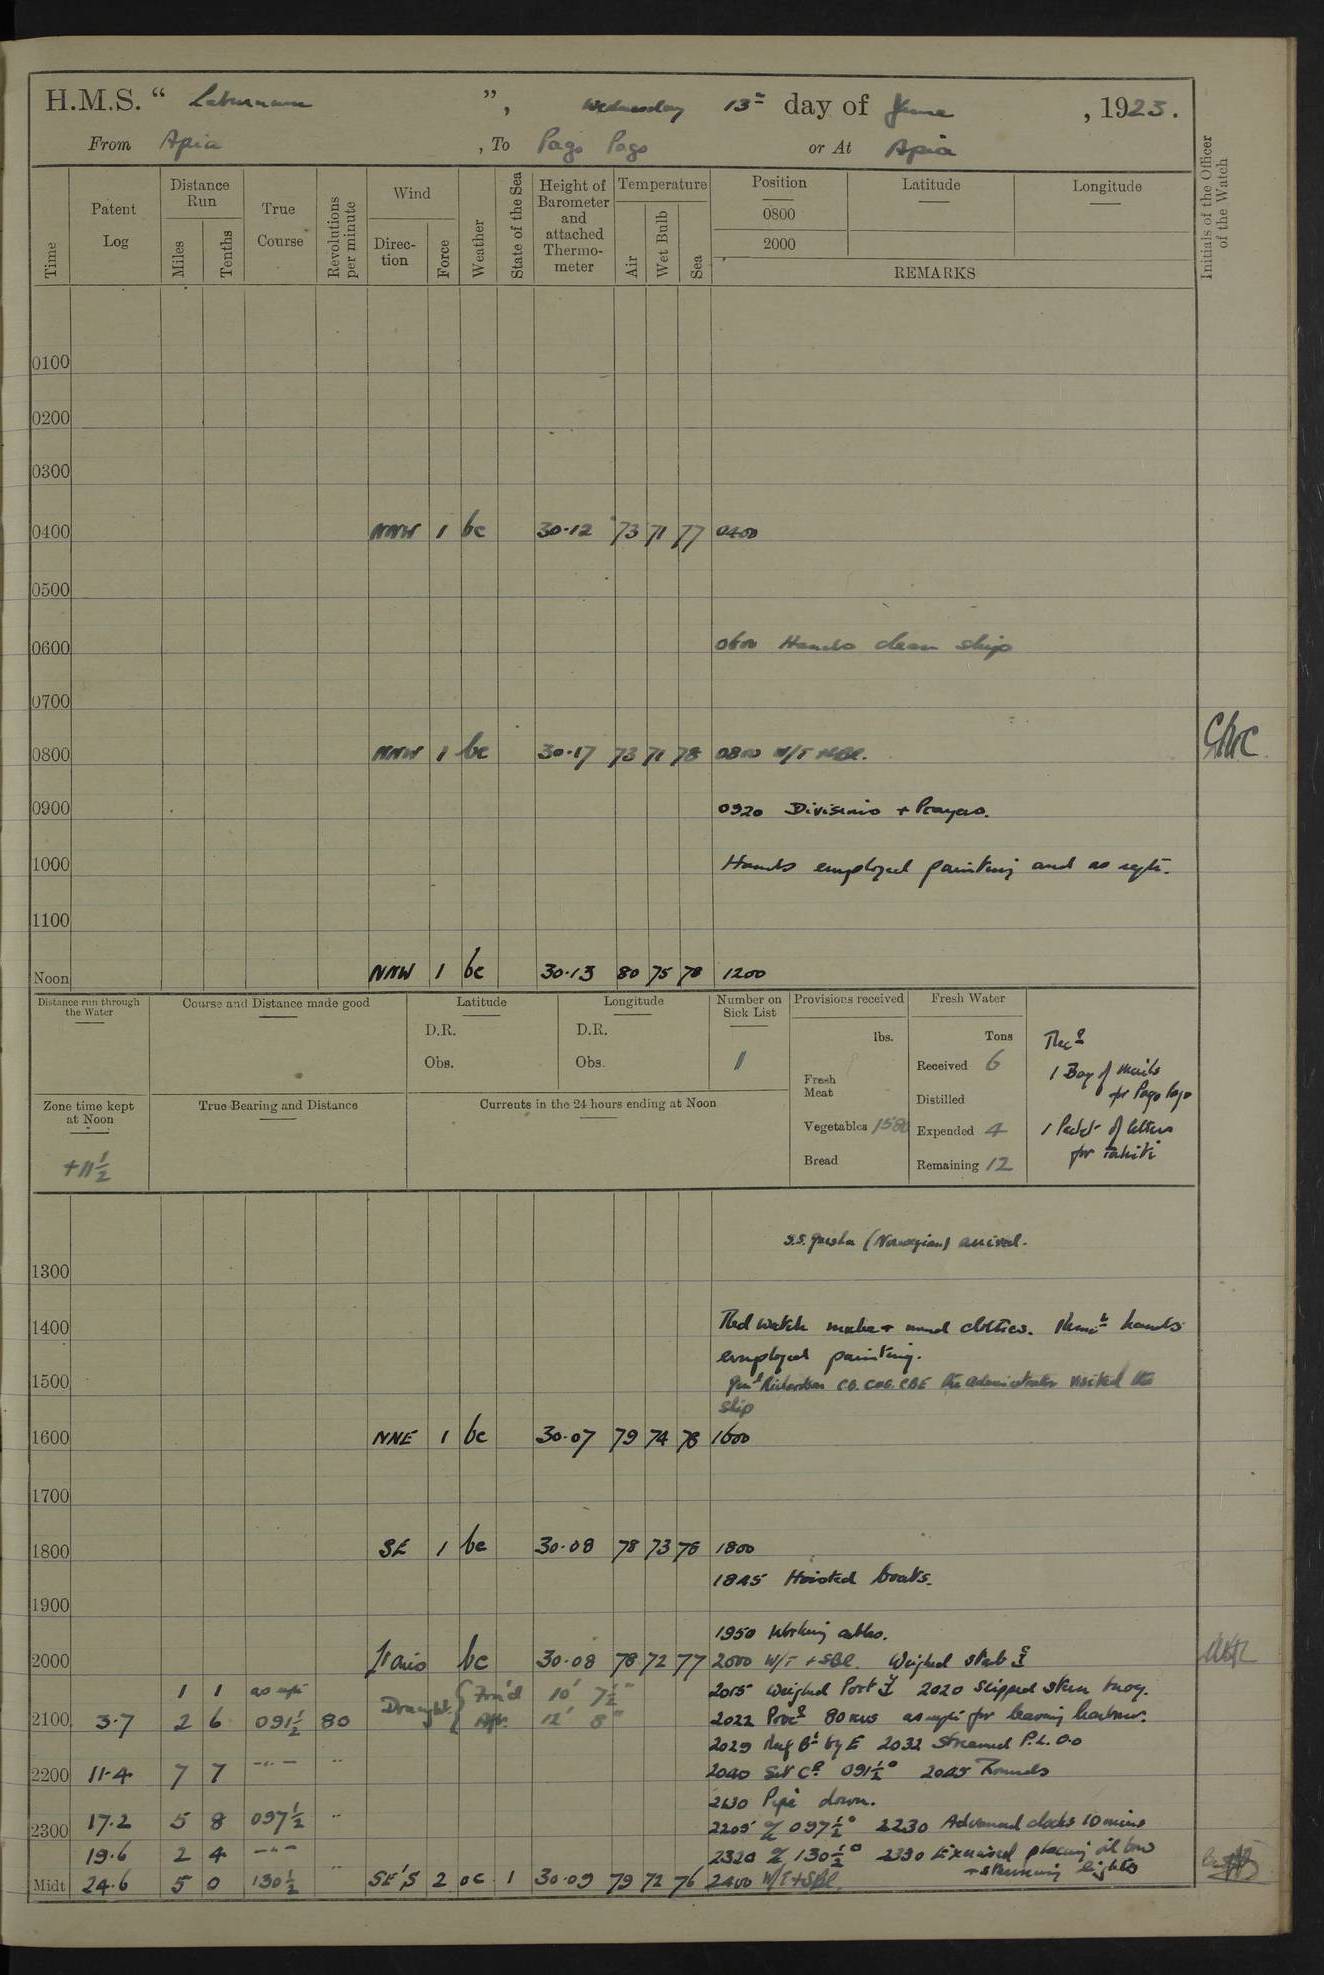 H.M.S. “ Laburnum ”, Wednesday 13th day of June , 1923.
From Apia , To Pago Pago or At Apia
Time
Patent Log
Distance Run
Miles
Tenths
True Course
Revolutions per minute
Wind
Direction
Force
Weather
State of the Sea
Height of Barometer and attached Thermometer
Temperature
Air
Wet Bulb
Sea
Position
0800
2000
Latitude
Longitude
REMARKS
Initials of the Officer of the Watch
0100
0200
0300
0400 NNW 1 bc 30.12 73 71 77 0400
0500
0600 0600 Hands clean ship
0700
0800 NNW 1 bc 30.17 73 71 78 0800 W/T
0900 0920 Divisions + Prayers.
1000 Hands employed painting and as reqte.
1100
Noon NNW 1 bc 30.13 80 75 78 1200
Distance run through the Water
Course and Distance made good
Latitude
D.R.
Obs.
Longitude
D.R.
Obs.
Number on Sick List
11
Provisions received
lbs.
Fresh Meat
Vegetables 1580
Bread
Fresh Water
Tons
Received 6
Distilled
Expended 4
Remaining 12
Recd
1 Bag of mails
for Pago Pago
1 Packet of letters
for Tahiti
Zone time kept at Noon
+11 1/2
True Bearing and Distance
Currents in the 24 hours ending at Noon
S.S. (Norwegian) arrived.
1300
1400 Red watch make + mend clothes. hands
employed painting.
1500 Genl Richardson CB. CMG. CBE the administrator visited the
ship
1600 NNE 1 bc 30.07 79 74 78 1600
1700
1800 SE 1 bc 30.08 78 73 78 1800
1845 Hoisted boats.
1900
1950 Working cables.
2000 bc 30.08 78 72 77 2000 W/T + SBL. Weighed starb
1 1 as reqte Draught { For'd 10' 7 1/2" 2015 Weighed Port 2020 Slipped stern buoy.
2100 3.7 2 6 091 1/2 80 Aft. 12' 8" 2022 Procd 80 revs as reqte for leaving harbour.
2029 by E 2032 Streamed P.L. 0.0
2200 11.4 7 7 -"- " 2040 Set Co 091 1/2° 2045 Rounds
2130 Pipe down.
2300 17.2 5 8 097 1/2 " 2205 097 1/2° 2230 Advanced clocks 10 mins
19.6 2 4 -"- 2320 130 1/2° 2330 Exercised placing oil bow
+ steaming lights
Midt 24.6 5 0 130 1/2 " SE'S 2 oc 1 30.09 79 72 76 2400 W/T + SBL.